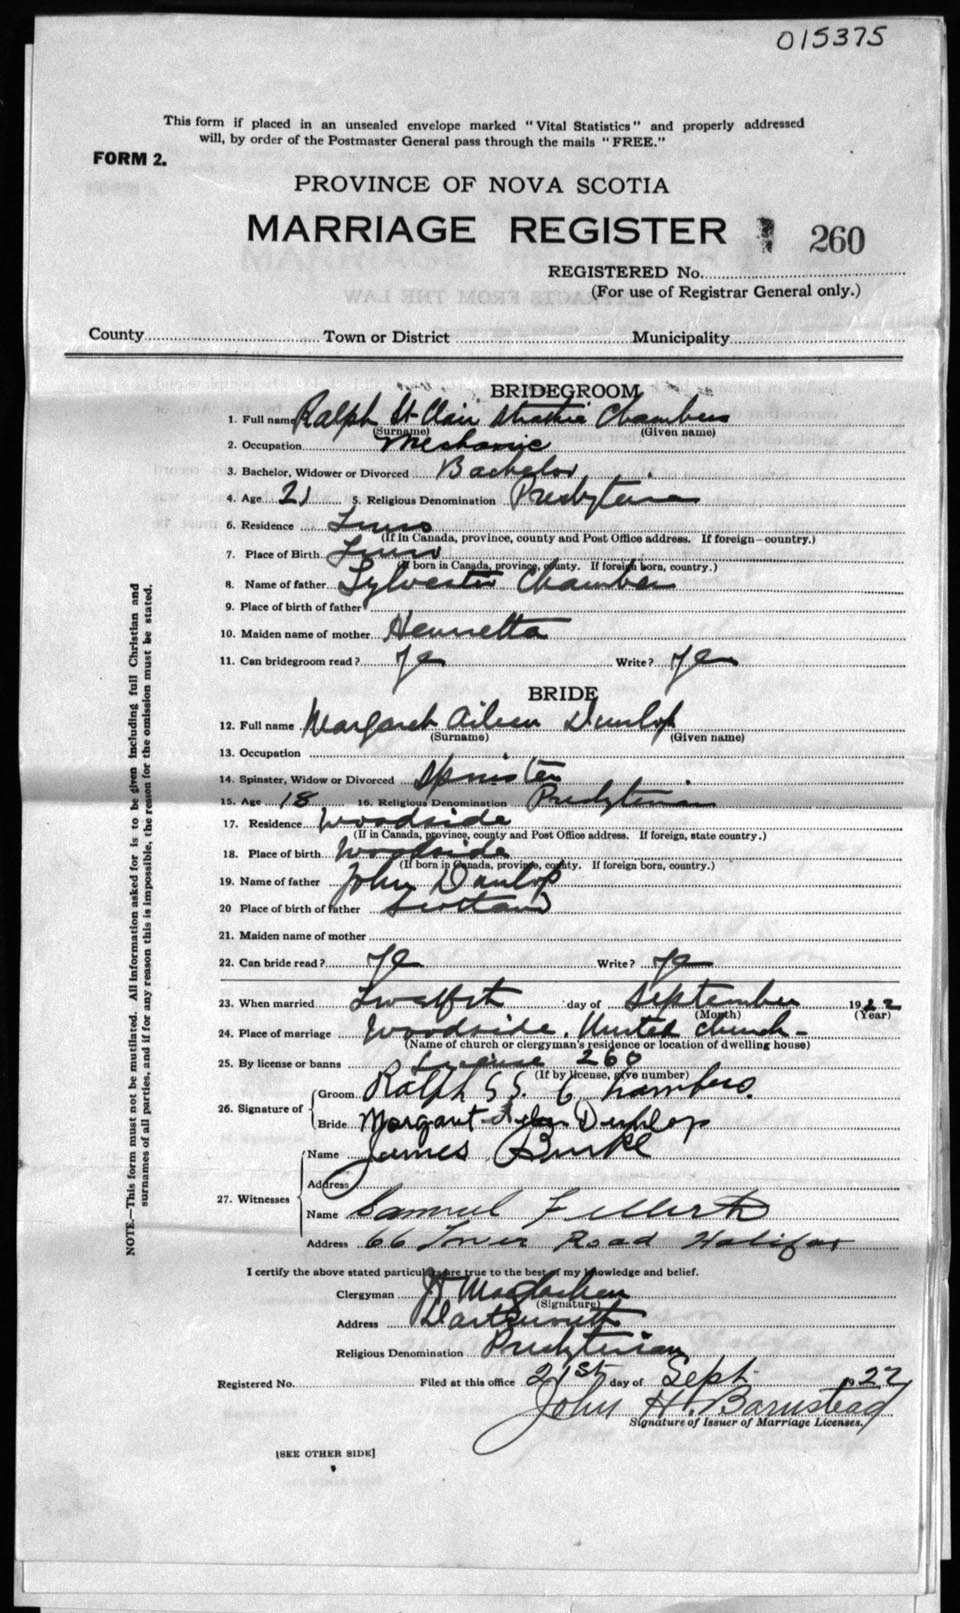 015375
This form if placed in an unsealed envelope marked "Vital Statistics" and properly addressed
will, by order of the Postmaster General pass through the mails "FREE."
FORM 2.
PROVINCE OF NOVA SCOTIA
MARRIAGE REGISTER 260
REGISTERED No.
(For use of Registrar General only.)
County Town or District Municipality
BRIDEGROOM
1. Full name Ralph St Clair Chambers
(Surname) (Given name)
2. Occupation Mechanic
3. Bachelor, Widower or Divorced Bachelor
4. Age 21 5. Religious Denomination Presbyterian
6. Residence Truro
(If in Canada, province, county and Post Office address. If foreign—country.)
7. Place of Birth Truro
(If born in Canada, province, county. If foreign born, country.)
8. Name of father Sylvester Chambers
9. Place of birth of father
10. Maiden name of mother Henrietta
11. Can bridegroom read? Yes Write? Yes
BRIDE
12. Full name Margaret Aileen Dunlop
(Surname) (Given name)
13. Occupation
14. Spinster, Widow or Divorced Spinster
15. Age 18 16. Religious Denomination Presbyterian
17. Residence Woodside
(If in Canada, province, county and Post Office address. If foreign, state country.)
18. Place of birth Woodside
(If born in Canada, province, county. If foreign born, country.)
19. Name of father John Dunlop
20 Place of birth of father Scotland
21. Maiden name of mother
22. Can bride read? Yes Write? Yes
23. When married Twelfth day of September 1922
(Month) (Year)
24. Place of marriage Woodside. United Church-
(Name of church or clergyman's residence or location of dwelling house)
25. By license or banns License 260
(If by license, give number)
26. Signature of
Groom Ralph S S. Chambers.
Bride Margaret Dunlop
27. Witnesses
Name James Burke
Address
Name Samuel
Address 66 Tower Road Halifax
I certify the above stated particulars are true to the best of my knowledge and belief.
Clergyman
(Signature)
Address Dartmouth
Religious Denomination Presbyterian
Registered No. Filed at this office 21st day of Sept. 1922
John H. Barnstead
Signature of Issuer of Marriage Licenses.
[SEE OTHER SIDE]
NOTE.—This form must not be mutilated. All information asked for is to be given including full Christian and
surnames of all parties, and if for any reason this is impossible, the reason for the omission must be stated.